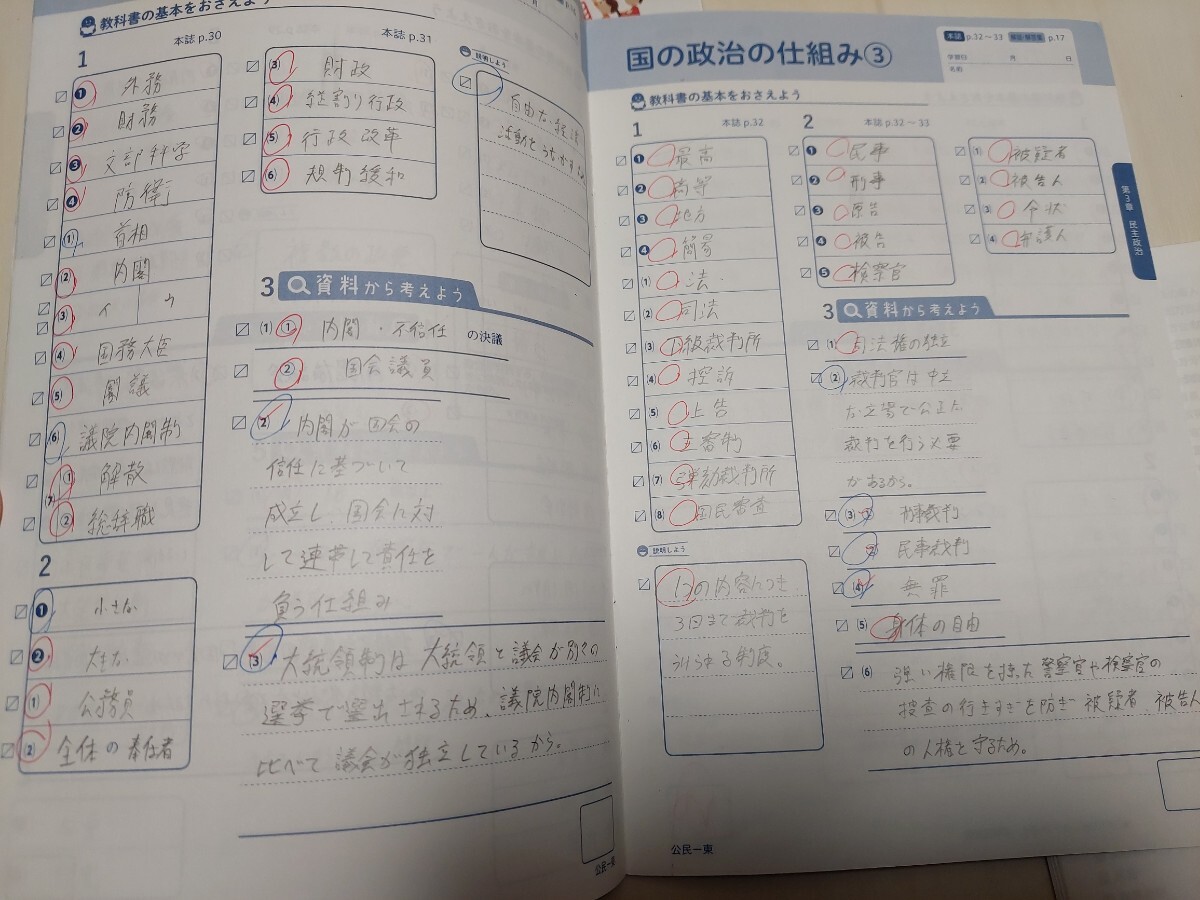 教科書の基本をおさえよう
1
本誌 p.30
❶ 外務
❷ 財務
❸ 文部科学
❹ 防衛
(1) 首相
(2) 内閣
(3) イ ウ
(4) 国務大臣
(5) 閣議
(6) 議院内閣制
(7) ① 解散
② 総辞職
2
❶ 小さな
❷ 大きな
(1) 公務員
(2) 全体の奉仕者
本誌 p.31
(3) 財政
(4) 縦割り行政
(5) 行政改革
(6) 規制緩和
説明しよう
自由な経済
活動をうながすため
3 資料から考えよう
(1) ① 内閣・不信任 の決議
② 国会議員
(2) 内閣が国会の
信任に基づいて
成立し、国会に対
して連帯して責任を
負う仕組み
(3) 大統領制は大統領と議会が別々の
選挙で選出されるため、議院内閣制に
比べて議会が独立しているから。
公民ー東
国の政治の仕組み③
本誌 p.32〜33 解説・解答集 p.17
学習日 月 日
名前
教科書の基本をおさえよう
1
本誌 p.32
❶ 最高
❷ 高等
❸ 地方
❹ 簡易
(1) 法
(2) 司法
(3) 下級裁判所
(4) 控訴
(5) 上告
(6) 三審制
(7) 弾劾裁判所
(8) 国民審査
説明しよう
1つの内容につき
3回まで裁判を
受けられる制度。
2
本誌 p.32〜33
❶ 民事
❷ 刑事
❸ 原告
❹ 被告
❺ 検察官
(1) 被疑者
(2) 被告人
(3) 令状
(4) 弁護人
3 資料から考えよう
(1) 司法権の独立
(2) 裁判官は中立
な立場で公正な
裁判を行う必要
があるから。
(3) ① 刑事裁判
② 民事裁判
(4) 無罪
(5) 身体の自由
(6) 強い権限を持った警察官や検察官の
捜査の行きすぎを防ぎ被疑者、被告人
の人権を守るため。
第3章 民主政治
公民ー東